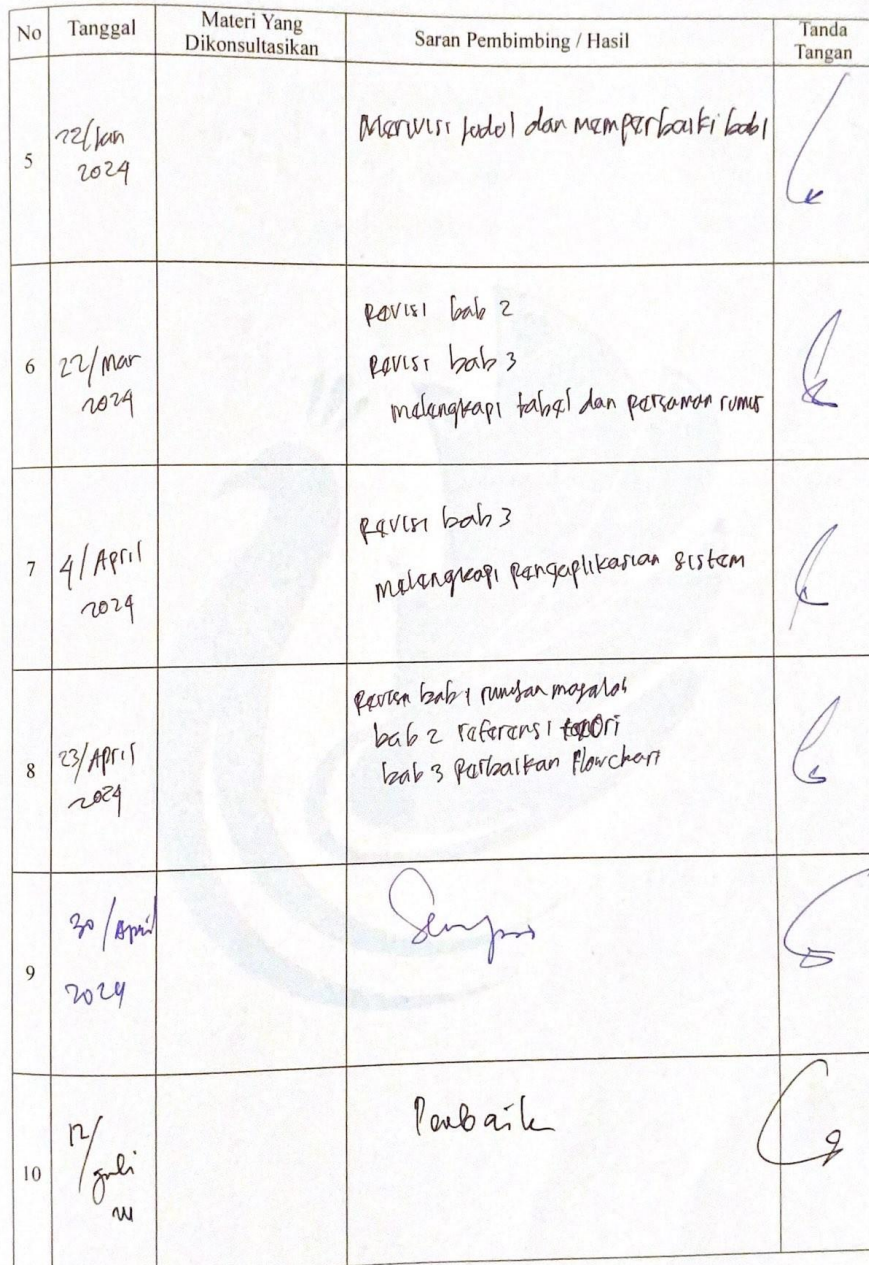 No Tanggal Materi Yang Dikonsultasikan Saran Pembimbing / Hasil Tanda Tangan
5 22/Jan 2024 Merivisi judol dan memperbaiki bab 1
6 22/Mar 2024
Revisi bab 2
Revisi bab 3
melengkapi tabel dan persaman rumus
7 4/April 2024
Revisi bab 3
melengkapi pengaplikasian sistem
8 23/April 2024
Revisi bab 1 masalah
bab 2 referensi teori
bab 3 Perbaikan Flowchart
9 30/April 2024
Sempro
10 12/Juli